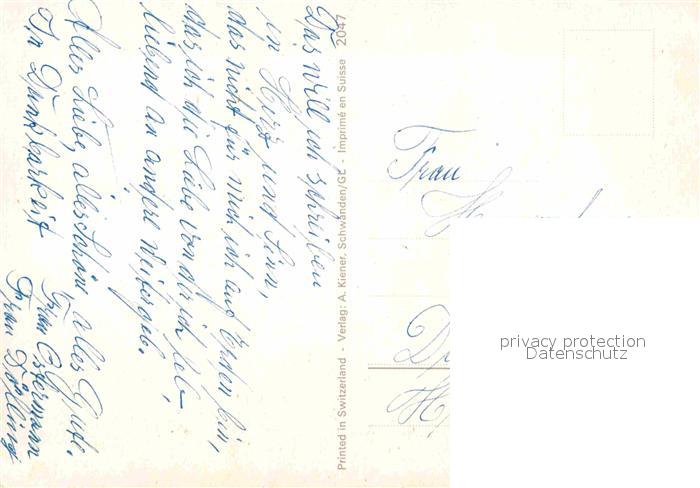 Das will ich schreiben
in Herz und Sinn,
das nicht für mich ich auf Erden bin,
das ich die Liebe von dir ich leb,
liebend an andere weitergeb.
Alles Liebe, alles Schöne, alles Gute.
In Dankbarkeit
Frau Ostermann
Frau Dölling
Printed in Switzerland - Verlag: A. Kiener, Schwanden/GL - Imprimé en Suisse 2047
Frau
privacy protection
Datenschutz